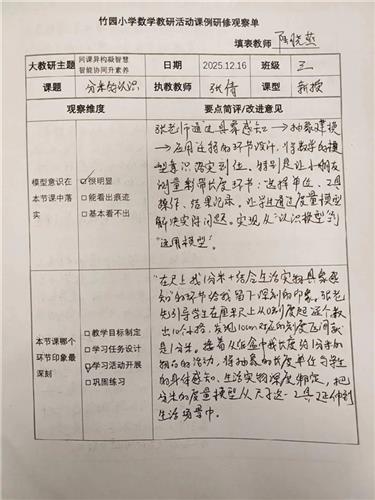 竹园小学数学教研活动课例研修观察单
填表教师 陈晓燕
大教研主题 同课异构凝智慧 智能协同升素养 日期 2025.12.16 班级 三
课题 分米的认识 执教教师 张倩 课型 新授
观察维度 要点简评/改进意见
模型意识在本节课中落实
☑很明显
□能看出痕迹
□基本看不出
张老师通过具象感知→抽象建模
→应用迁移的环节设计,将数学的模
型意识落实到位。特别是让小朋友
测量彩带长度环节:选择单位、工具
操作、结果记录,让学生通过度量模型
解决实际问题。实现从“认识模型”到
“运用模型”。
本节课哪个环节印象最深刻
□教学目标制定
□学习任务设计
☑学习活动开展
□巩固练习
“在尺上找1分米+结合生活实物具象感
知”的环节给我留下深刻的印象。张老
师引导学生在直尺上从0刻度起逐个数
出10个小格,发现10cm对应的刻度区间就
是1分米。接着从纸盒中找长度约1分米的
物品的活动,将抽象的长度单位与学生
的身体感知、生活实物深度绑定,把
分米的度量模型从尺子这一工具延伸到
生活场景中。